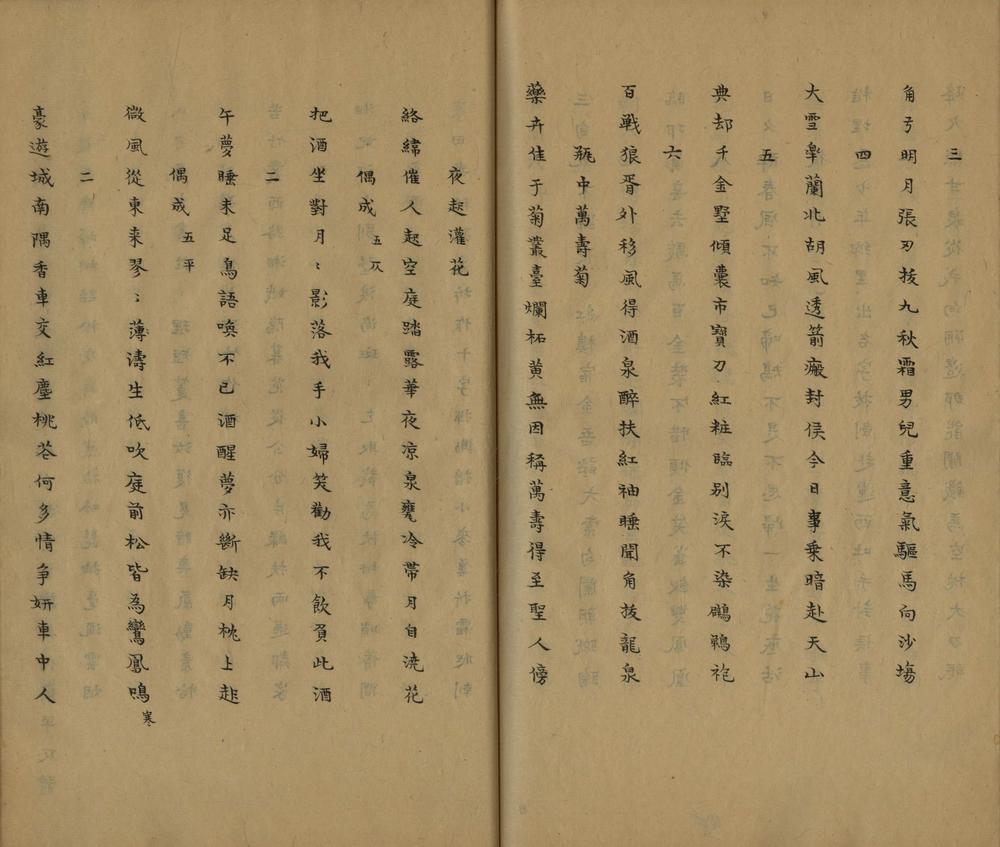 三
角弓明月張刀拔九秋霜男兒重意氣驅馬向沙場
四
大雪皐蘭北胡風透箭瘢封侯今日事乗暗赴天山
五
典却千金墅傾囊市寶刀紅粧臨別淚不染鸊鵜袍
六
百戰狼胥外移風得酒泉醉扶紅袖睡聞角拔龍泉
瓶中萬壽菊
藥卉佳于菊叢臺爛柘黃無因稱萬壽得至聖人傍
夜起灌花
絡緯催人起空庭踏露華夜凉泉甕冷帶月自澆花
偶成 五仄
把酒坐對月〻影落我手小婦笑勸我不飲負此酒
二
午夢睡未足鳥語喚不已酒醒夢亦斷缺月枕上起
偶成 五平
微風從東来翏〻薄濤生低吹庭前松皆為鸞鳳鳴 寒
二
豪遊城南隅香車交紅塵桃花何多情爭妍車中人